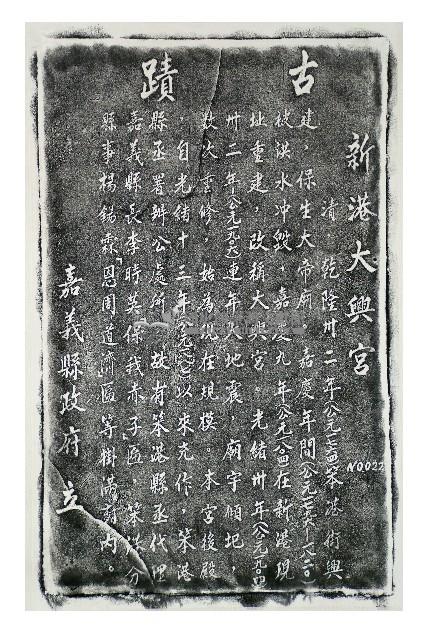 古蹟
新港大興宮
清乾隆卅二年(公元一七六四)笨港街興
建，保生大帝廟，嘉慶年間(公元一七九六—一八二〇)
被洪水冲毀，嘉慶九年(公元一八〇四)在新港現
址重建，改稱大興宮。光緒卅年(公元一九〇四
卅二年(公元一九〇六)連年大地震，廟宇傾圯，
数次重修，始為現在規模。本宮後殿
，自光緒十三年(公元一八八七)以來充作，笨港
縣丞署辦公處所，故有笨港縣丞代理
嘉義縣長李時英「保我赤子」匾，笨港分
縣事楊錫霖「恩周道濟」匾等掛滿廟內。
嘉義縣政府立
NO022